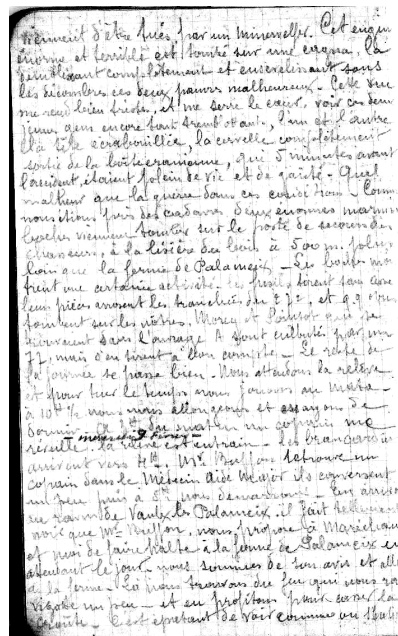 viennent d'être tués par un minenwerfer. Cet engin
énorme et terrible est tombé sur une cagna, la
démolissant complètement et ensevelissant sous
les décombres ces deux pauvres malheureux. Cette vue
me rend bien triste, et me serre le cœur, voir ces deux
jeunes gens encore tout l'un et l'autre
la tête écrabouillée, la cervelle complètement
sortie de la boîte cranienne, qui 5 minutes avant
l'accident, étaient plein de vie et de gaîté. Quel
malheur que la guerre dans ces conditions. Comme
nous étions près des cadavres deux enormes
boches viennent tomber sur le poste de secours des
chasseurs, à la lisière du bois à 500 m. plus
loin que la ferme de Palameix. Les boches
une certaine activité. Les fusils tirent sans cesse
leurs pièces arrosent les tranchées du 27e, et q.q. obus
tombent sur les nôtres. Morey et qui se
trouvaient dans l'ouvrage A sont culbutés par un
77, mais s'en tirent à bon compte. Le reste de
la journée se passe bien. Nous attendons la relève
et pour tuer le temps nous jouons au
à 10h ½ nous nous allongeons et essayons de
dormir. A du matin un copain me
mercredi 9 Février
réveille. La relève est en train. Les brancardiers
arrivent vers 4h. Mr Buffon retrouve un
copain dans le Médecin Aide Major ils conversent
un peu puis à 5h nous démarrons. En arrivant
au ravin de Vaux les Palameix, il fait tellement
noir que Mr Buffon, nous propose à Maréchaux
et moi de faire halte à la ferme de Palameix en
attendant le jour. Nous sommes de son avis et allons
à la ferme. Là nous trouvons du feu qui nous
un peu et en profitons pour casser la
croûte. C'est épatant de voir comme on